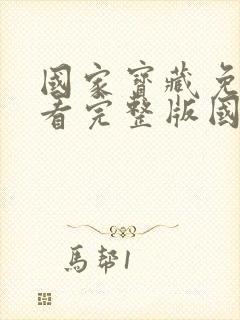 國家寶藏免
看完整版國
馬幇1